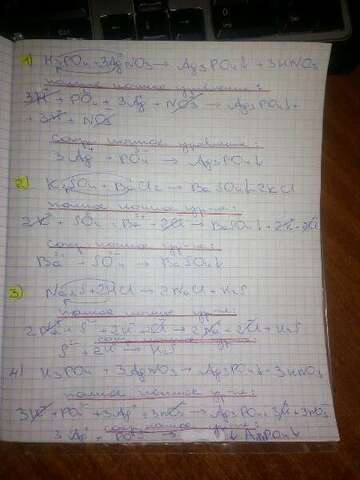 1) H3PO4 + 3AgNO3 → Ag3PO4↓ + 3HNO3
полное ионное уравнение:
3H + PO4 + 3Ag + NO3 → Ag3PO4↓ +
+ 3H + NO3
сокр. ионное уравнение:
3Ag + PO4 → Ag3PO4↓
2) K2SO4 + BaCl2 → BaSO4↓ 2KCl
полное ионное ур-ие:
2K + SO4 + Ba + 2Cl → BaSO4↓ + 2K + 2Cl
Сокр. ионное ур-ие:
Ba + SO4 → BaSO4↓
3) Na2S + 2HCl → 2NaCl + H2S
полное ионное ур-ие:
2Na + S²⁻ + 2H + 2Cl → 2Na + 2Cl + H2S
сокр. ионное ур.
S²⁻ + 2H → H2S
4) H3PO4 + 3AgNO3 → Ag3PO4↓ + 3HNO3
полное ионное ур-ие:
3H + PO4 + 3Ag + 3NO3 → Ag3PO4 + 3H + 3NO3
сокр. ионное ур-ие:
3Ag + PO4 →